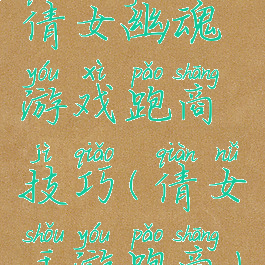 倩女幽魂
yóu xì pǎo shāng
游戏跑商
jì qiǎo qiàn nǚ
技巧(倩女
shǒu yóu pǎo shāng
手游跑商)